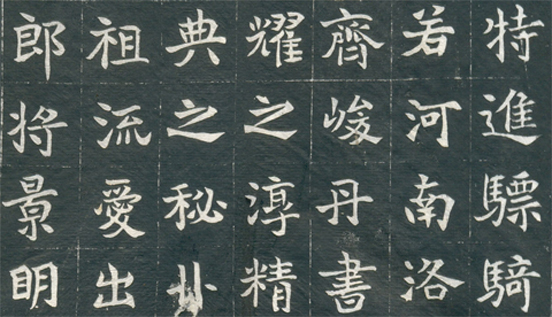 特進驃騎
若河南洛
齊峻丹書
耀之淳精
典之秘
祖流愛出
郎将景眀